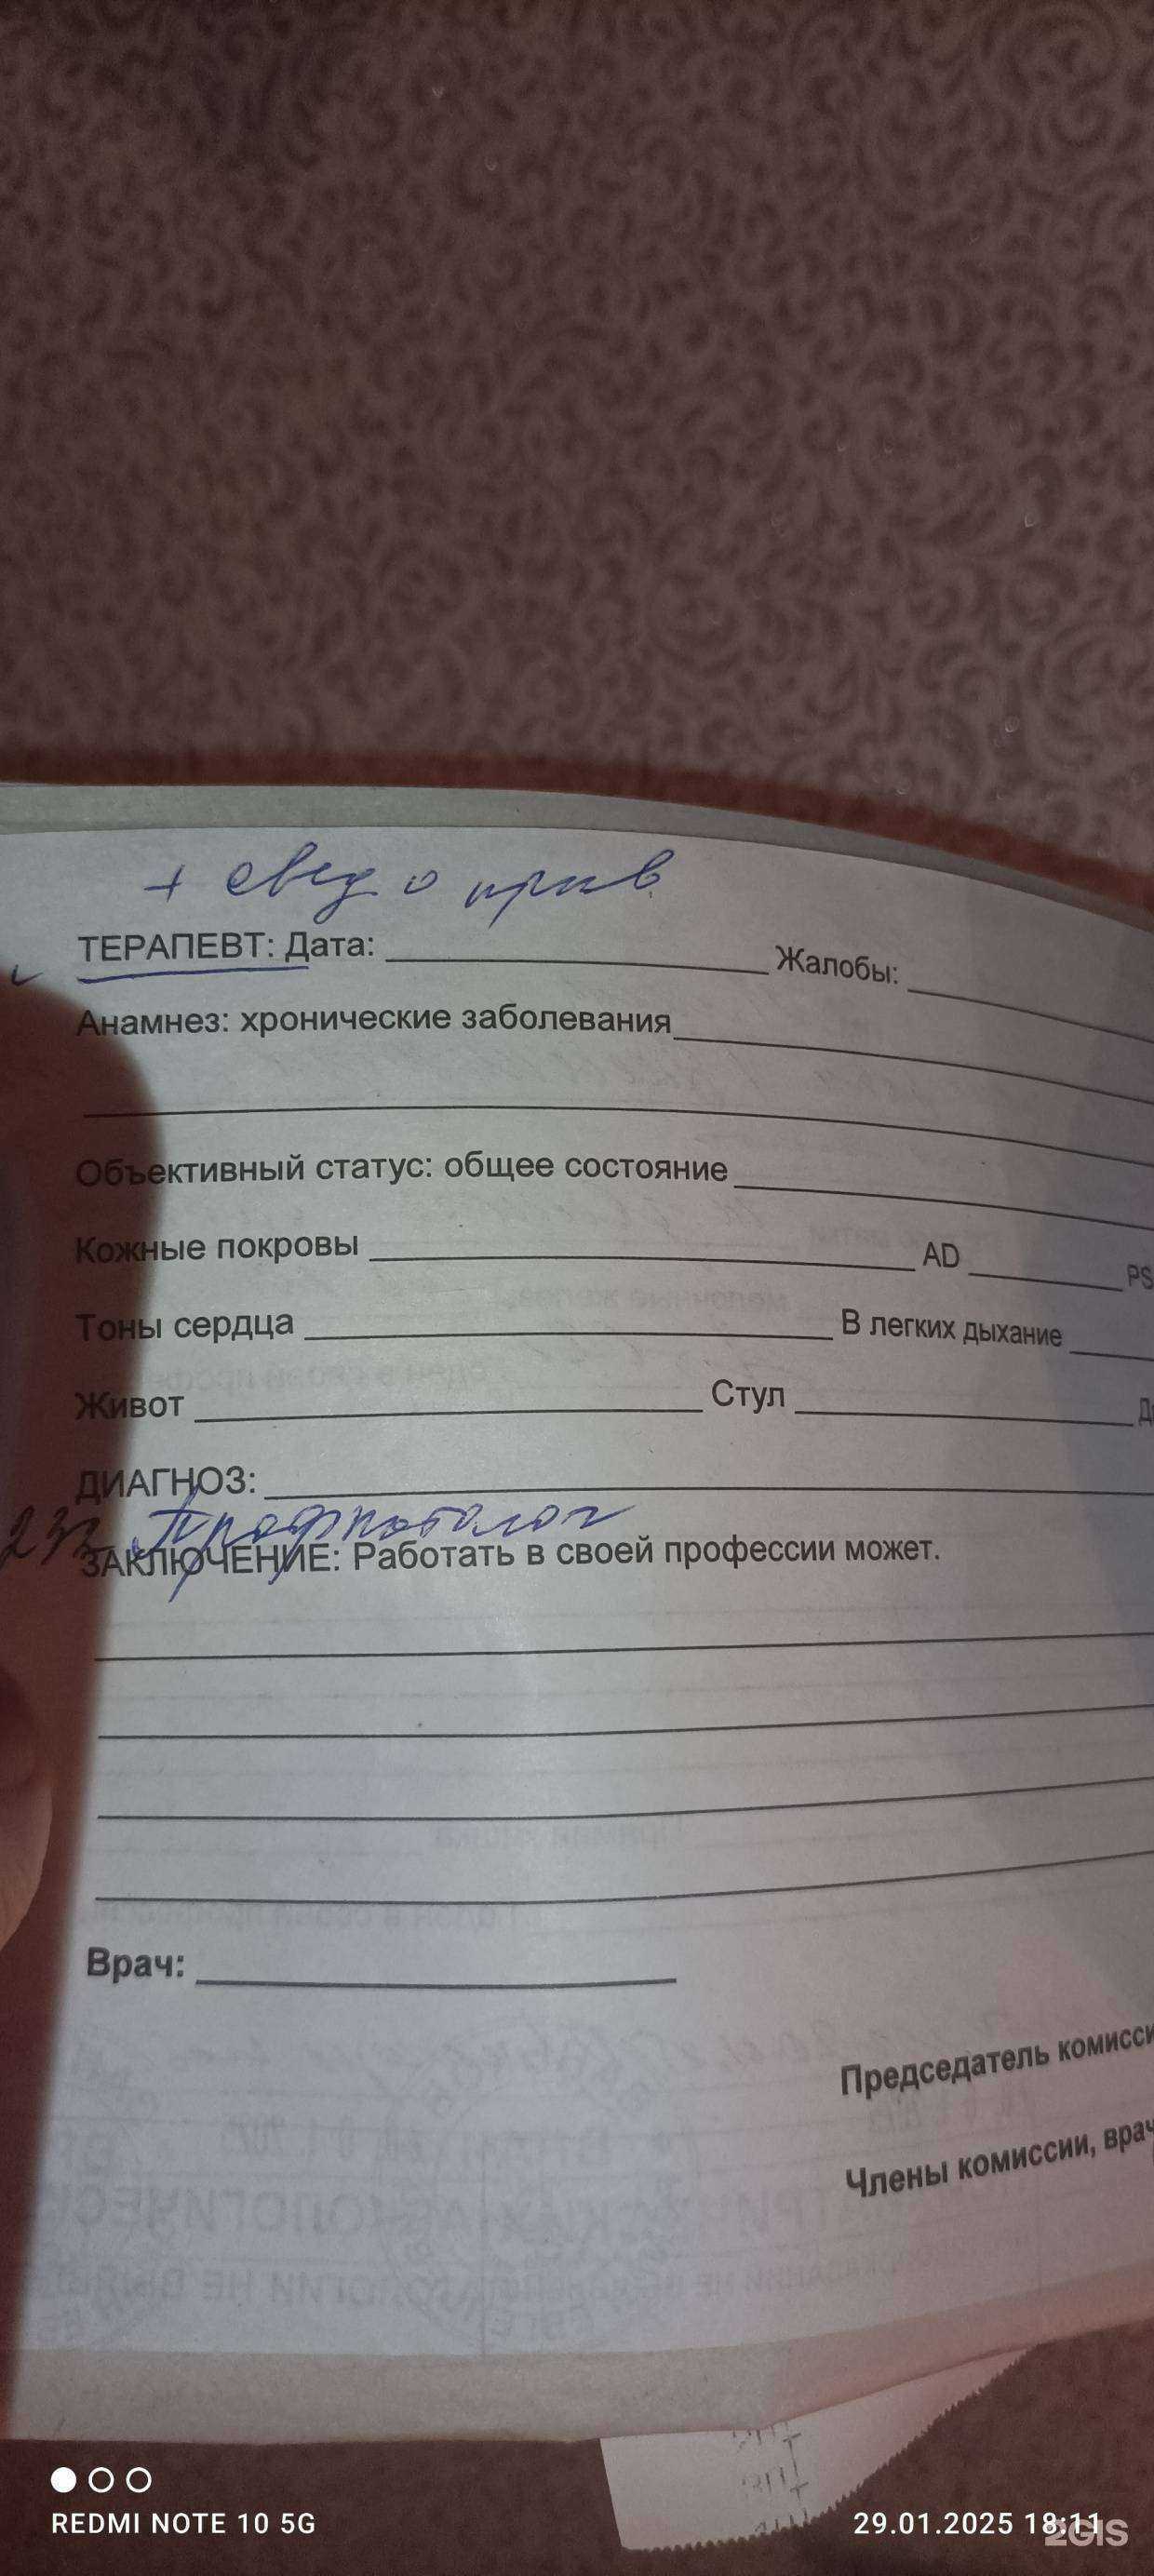 + свед о прив.
ТЕРАПЕВТ: Дата: Жалобы:
Анамнез: хронические заболевания
Объективный статус: общее состояние
Кожные покровы AD PS
Тоны сердца В легких дыхание
Живот Стул
ДИАГНОЗ:
Профпатолог
ЗАКЛЮЧЕНИЕ: Работать в своей профессии может.
Врач:
Председатель комисси
Члены комиссии, врач
REDMI NOTE 10 5G
29.01.2025 18:11
2GIS